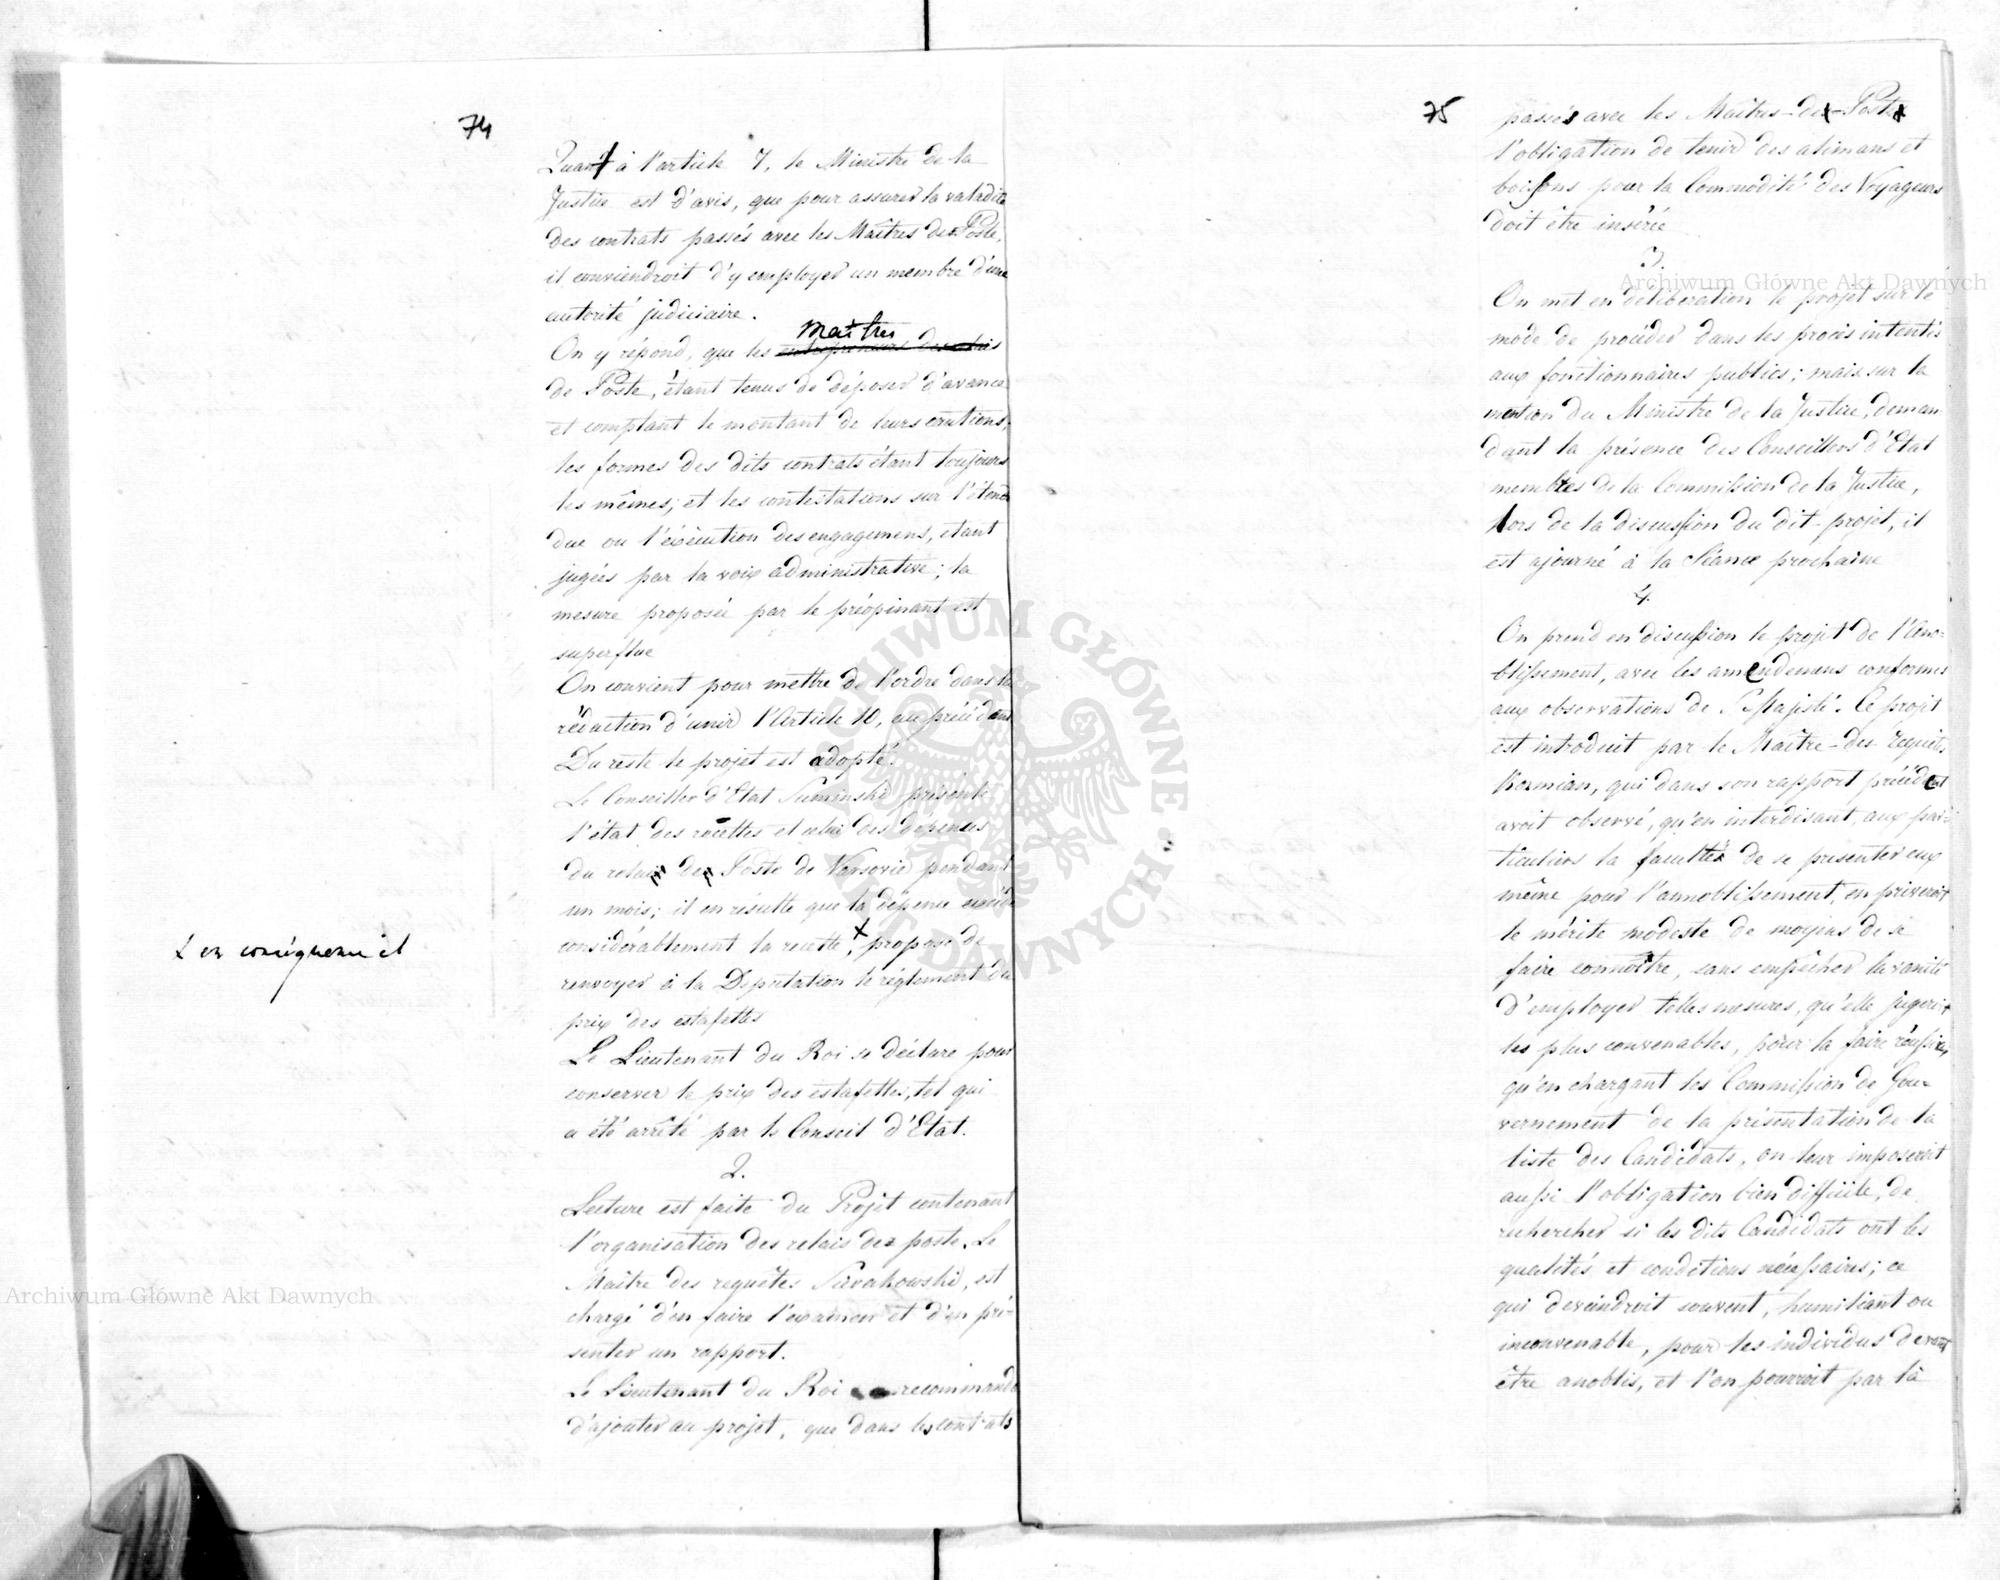 74
Quant à l'article 7, le Ministre de la
Justice est d'avis, que pour assurer la validité
des contrats passés avec les Maîtres de Poste,
il conviendroit d'y employer un membre d'une
autorité judiciaire.
On y répond, que les entrepreneurs des relais
Maîtres
de Poste, étant tenus de déposer d'avance
et comptant le montant de leurs cautions,
les formes des dits contrats étant toujours
les mêmes; et les contestations sur l'éten-
due ou l'exécution des engagemens, étant
jugées par la voix administrative; la
mesure proposée par le préopinant est
superflue
On convient pour mettre de l'ordre dans la
rédaction d'unir l'Article 10, au précédent
Du reste le projet est adopté.
Le Conseiller d'Etat Suminski présente
l'état des recettes et celui des dépenses
du relais de Poste de Varsovie pendant
un mois; il en résulte que la dépense excède
considérablement la recette, x propose de
x en conséquence il
renvoyer à la Députation le réglement du
prix des estafettes
Le Lieutenant du Roi se déclare pour
conserver le prix des estafettes, tel qui
a été arrêté par le Conseil d'Etat.
2.
Lecture est faite du Projet contenant
l'organisation des relais de poste. Le
Maître des requêtes est
chargé d'en faire l'examen et d'en pré-
senter un rapport.
Le Lieutenant du Roi recommande
d'ajouter au projet, que dans les contrats
75
passés avec les Maîtres-de-Poste
l'obligation de tenir des alimans et
boissons pour la Commodité des Voyageurs
doit être insérée
3.
On met en délibération le projet sur le
mode de procéder dans les procès intentés
aux fonctionnaires publics; mais sur la
motion du Ministre de la Justice, deman-
dant la présence des Conseillers d'Etat
membres de la Commission de la Justice,
lors de la discussion du dit-projet, il
est ajourné à la Séance prochaine
4.
On prend en discussion le projet de l'Ano-
blissement, avec les amendemens conformes
aux observations de S. Majesté. Ce projet
est introduit par le Maître-des requêtes
Kozmian, qui dans son rapport précédent
avoit observé, qu'en interdisant aux par-
ticuliers la faculté de se presenter eux
même pour l'annoblissement, en priveroit
le mérite modeste de moyens de se
faire connoître, sans empêcher la vanité
d'employer telles mesures, qu'elle jugeroit
les plus convenables, pour la faire réussir,
qu'en chargant les Commission de Gou-
vernement de la présentation de la
liste des Candidats, on leur imposeroit
aussi l'obligation bien difficile, de
rechercher si les dits Candidats ont les
qualités et conditions nécessaires; ce
qui deviendroit souvent, humiliant ou
inconvenable, pour les individus devant
être anoblis, et l'on pourroit par là
Archiwum Główne Akt Dawnych
Archiwum Główne Akt Dawnych
ARCHIWUM GŁÓWNE AKT DAWNYCH